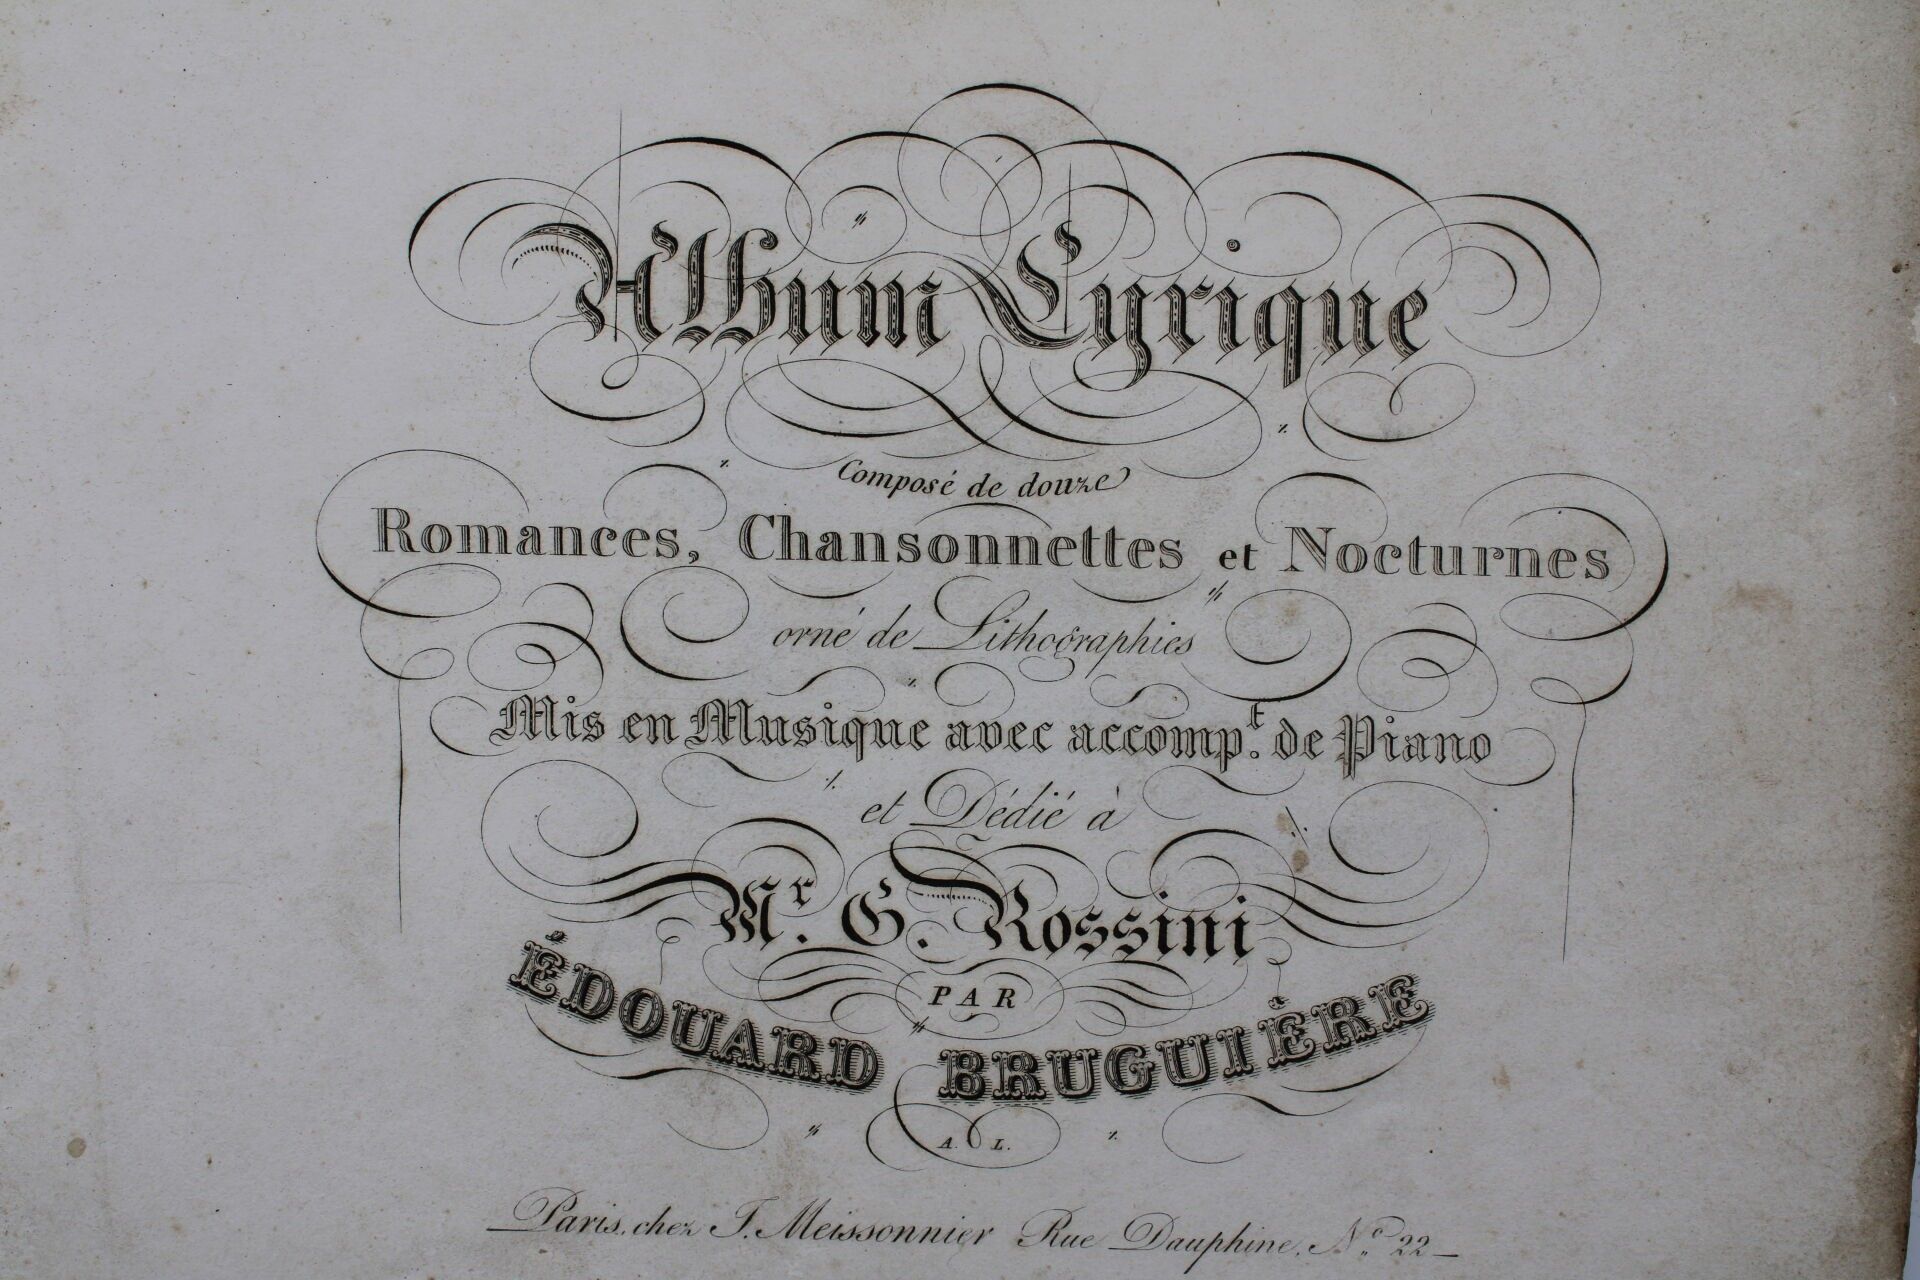 Album Lyrique
Composé de douze
Romances, Chansonnettes et Nocturnes
orné de Lithographies
Mis en Musique avec accomp.t de Piano
et Dédié à
Mr. G. Rossini
PAR
ÉDOUARD BRUGUIÈRE
A. L.
Paris, chez J. Meissonnier Rue Dauphine, No. 22